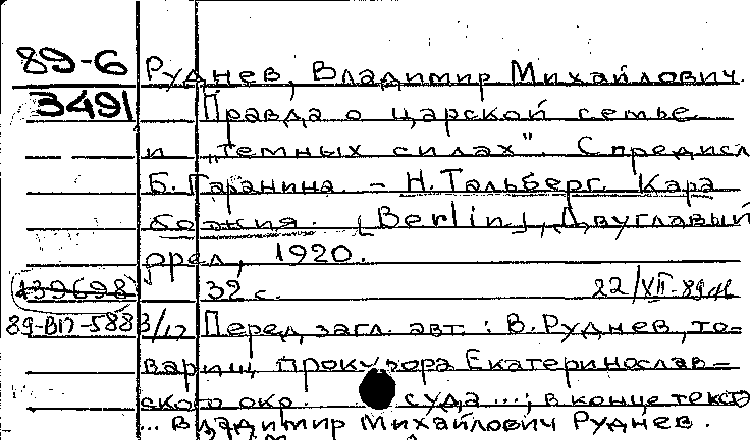 89-6 Руднев, Владимир Михайлович.
3491 Правда о царской семье
и „темных силах". С предисл
Б. Гаранина. – Н. Тальберг. Кара
божия. [Berlin], Двуглавый
орел, 1920.
139698 32 с. 22/XII-89
89-ВП-588 3/17 Перед загл. авт.: В. Руднев, то=
варищ прокурора Екатеринослав=
ского окр. суда ...; в конце текста
... Владимир Михайлович Руднев.